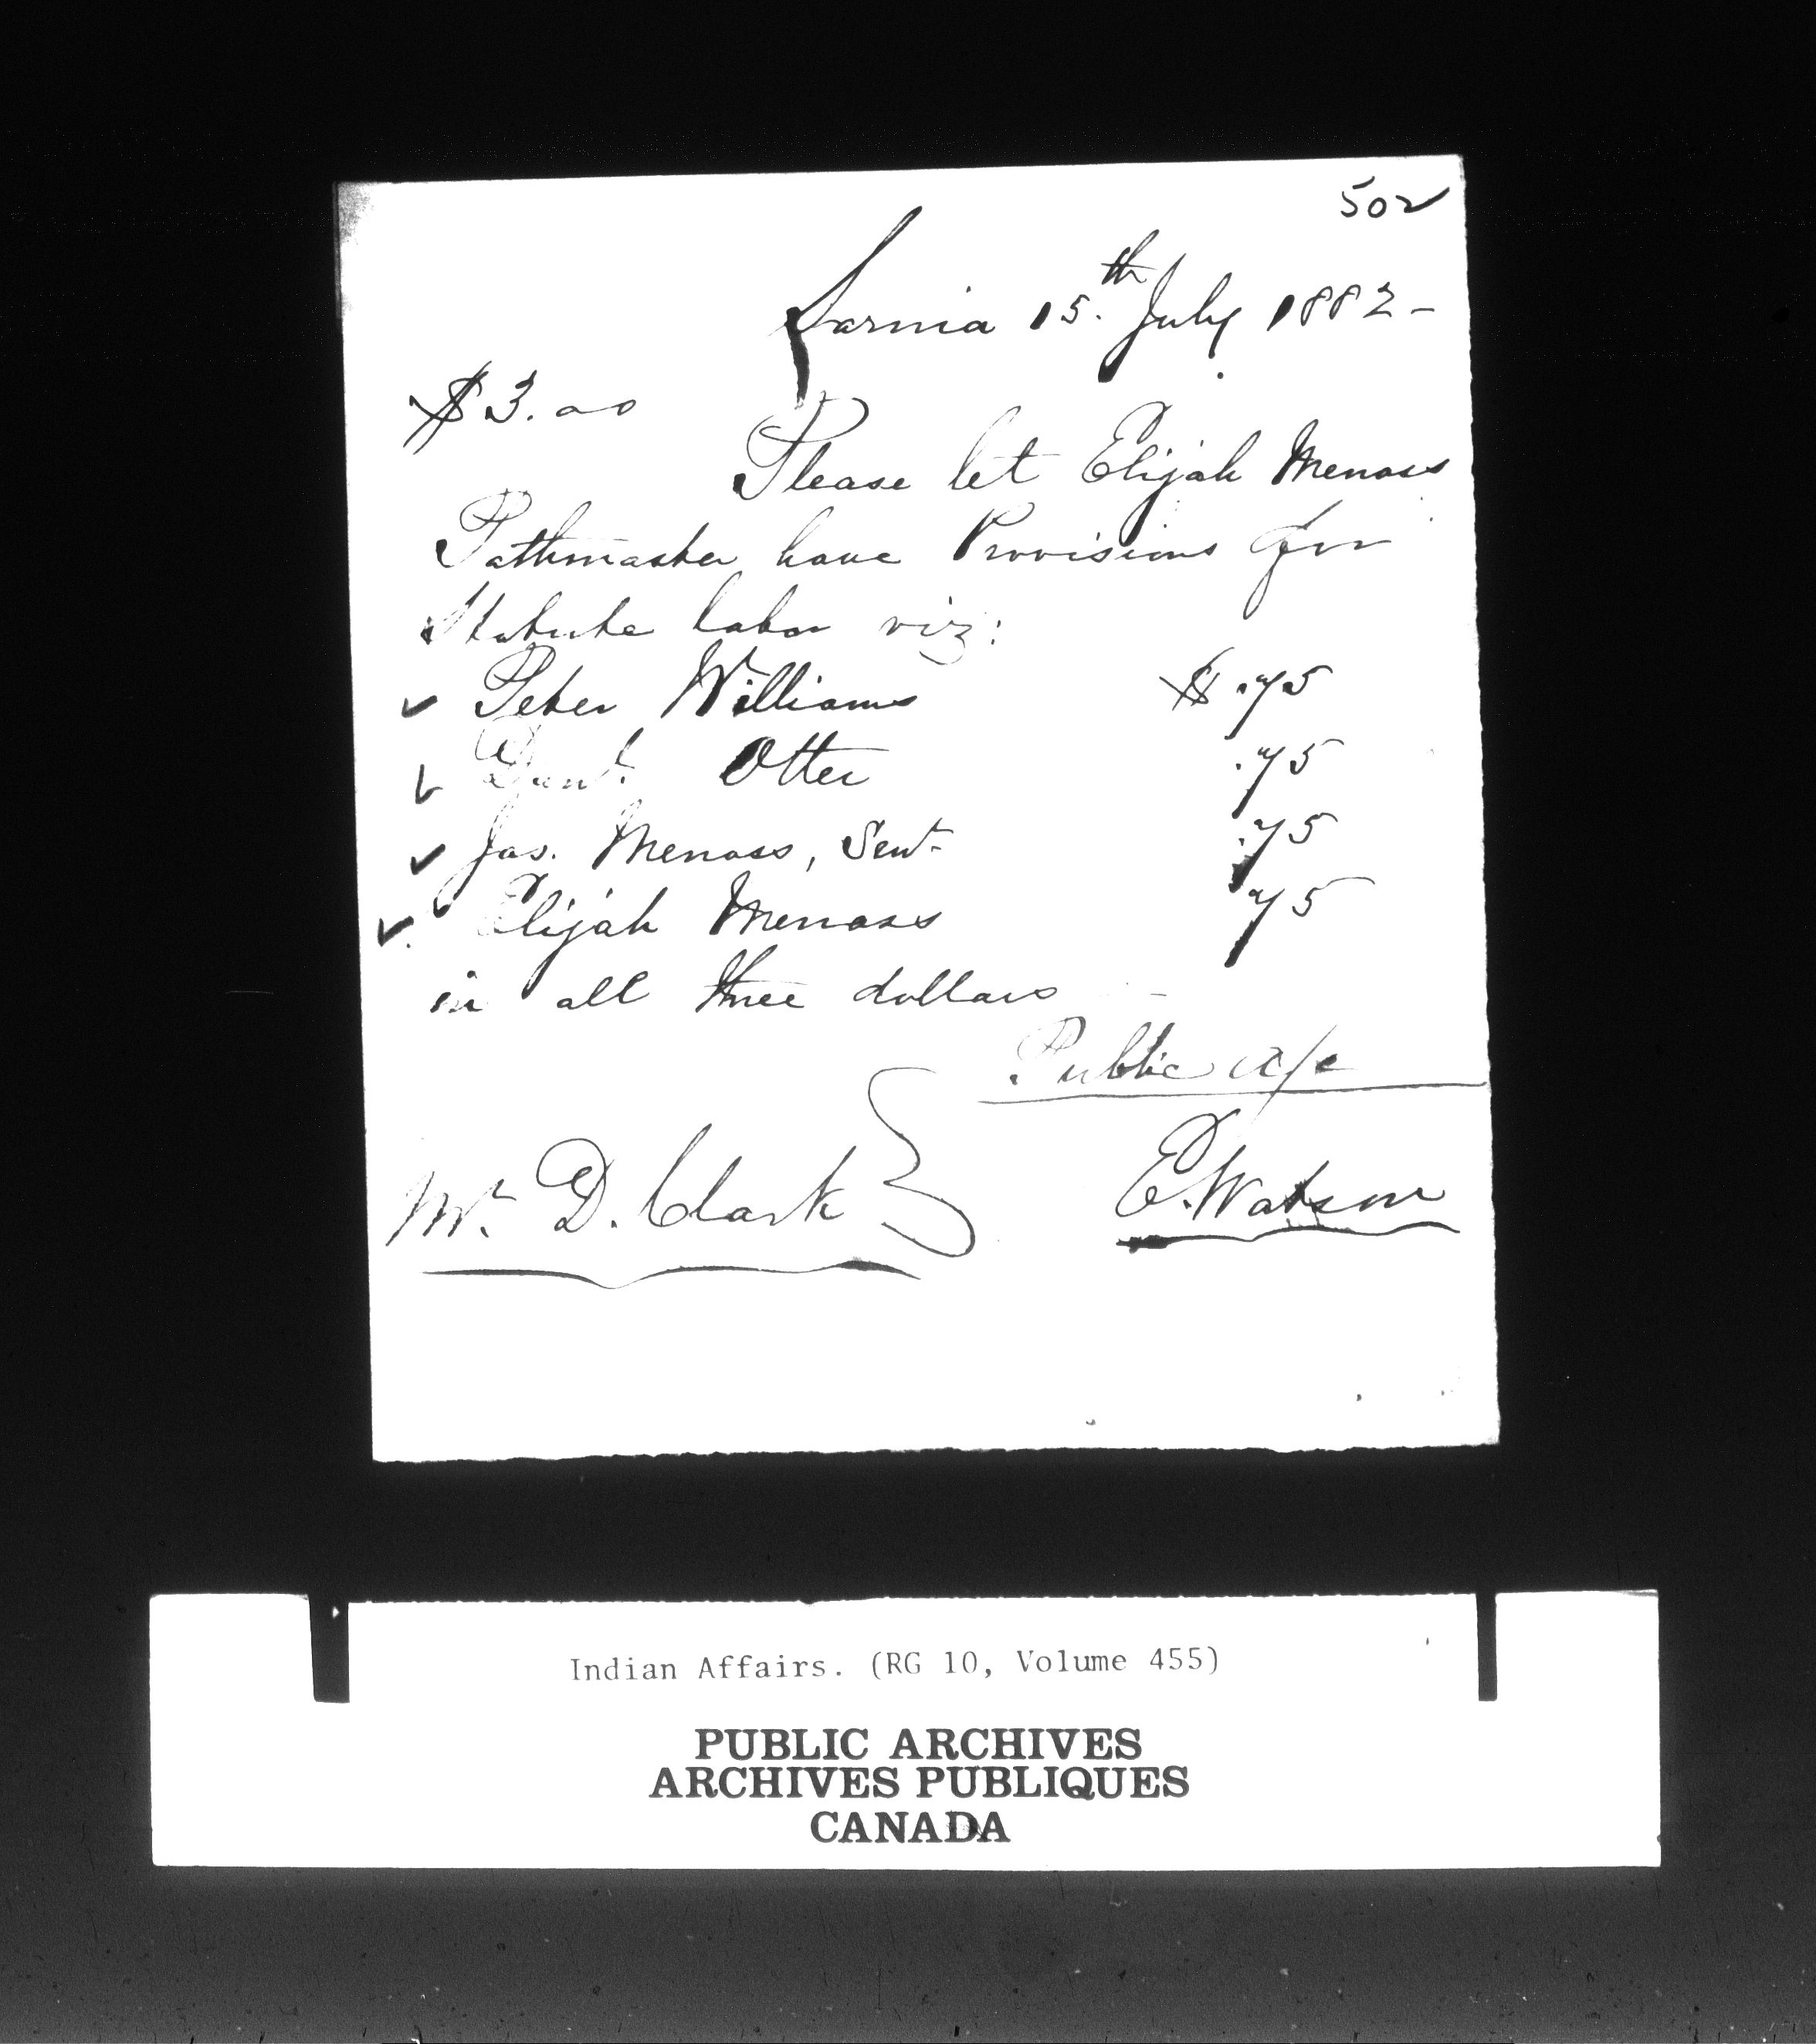 502
Sarnia 15.th July 1882-
$3.00
Please let Elijah Menass
Pathmaster have Provisions for
Statute labor viz:
✓ Peter Williams $.75
✓ Otter .75
✓ Jas. Menass, Senr. .75
✓ Elijah Menass 75
in all three dollars
Public a/c
Mr. D. Clark
E. Watson
Indian Affairs. (RG 10, Volume 455)
PUBLIC ARCHIVES
ARCHIVES PUBLIQUES
CANADA